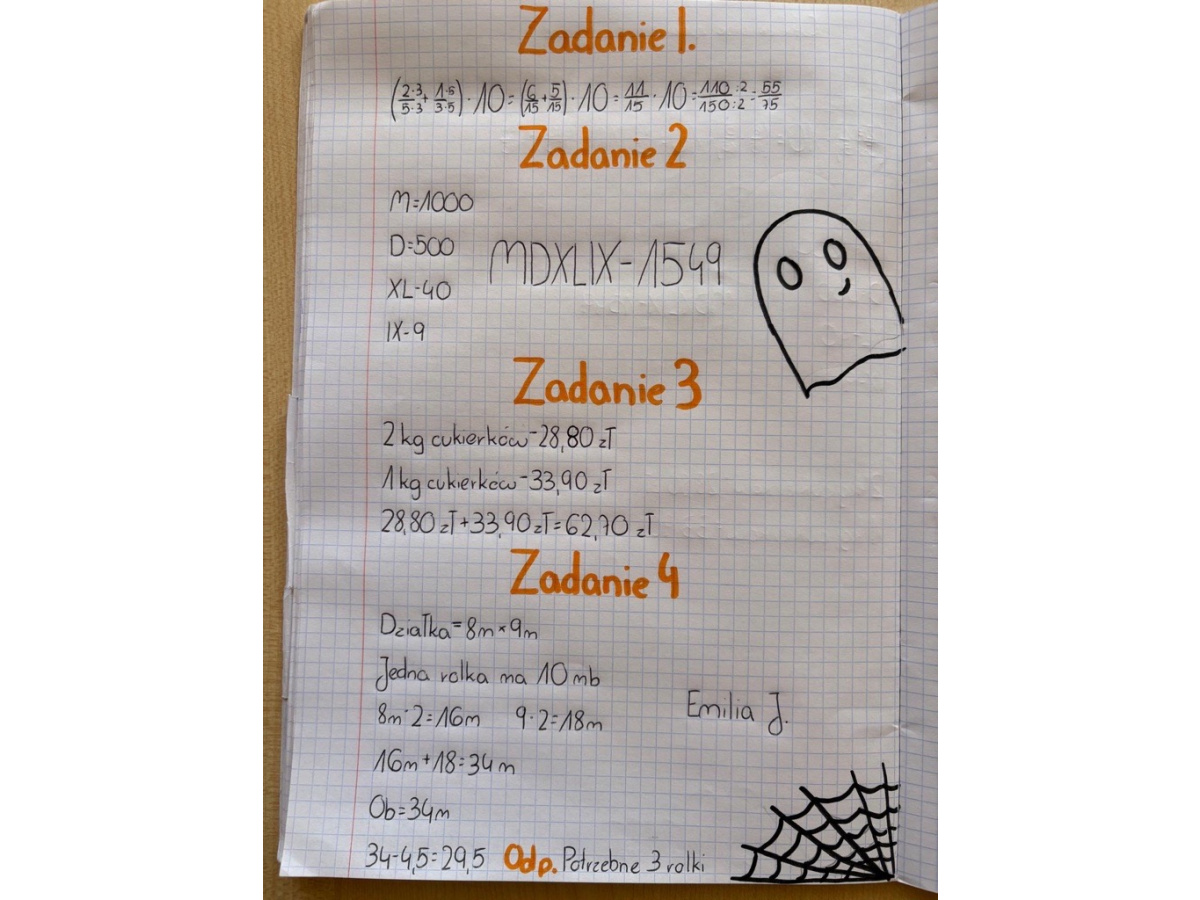 Zadanie 1.
(2·3/5·3 + 1·5/3·5) · 10 = (6/15 + 5/15) · 10 = 11/15 · 10 = 110:2/150:2 = 55/75
Zadanie 2
M=1000
D=500
MDXLIX-1549
XL-40
IX-9
Zadanie 3
2 kg cukierków-28,80 zł
1 kg cukierków-33,90 zł
28,80 zł+33,90 zł=62,70 zł
Zadanie 4
Działka=8m×9m
Jedna rolka ma 10 mb
8m·2=16m 9·2=18m
Emilia J.
16m+18=34m
Ob=34m
34-4,5=29,5 Odp. Potrzebne 3 rolki